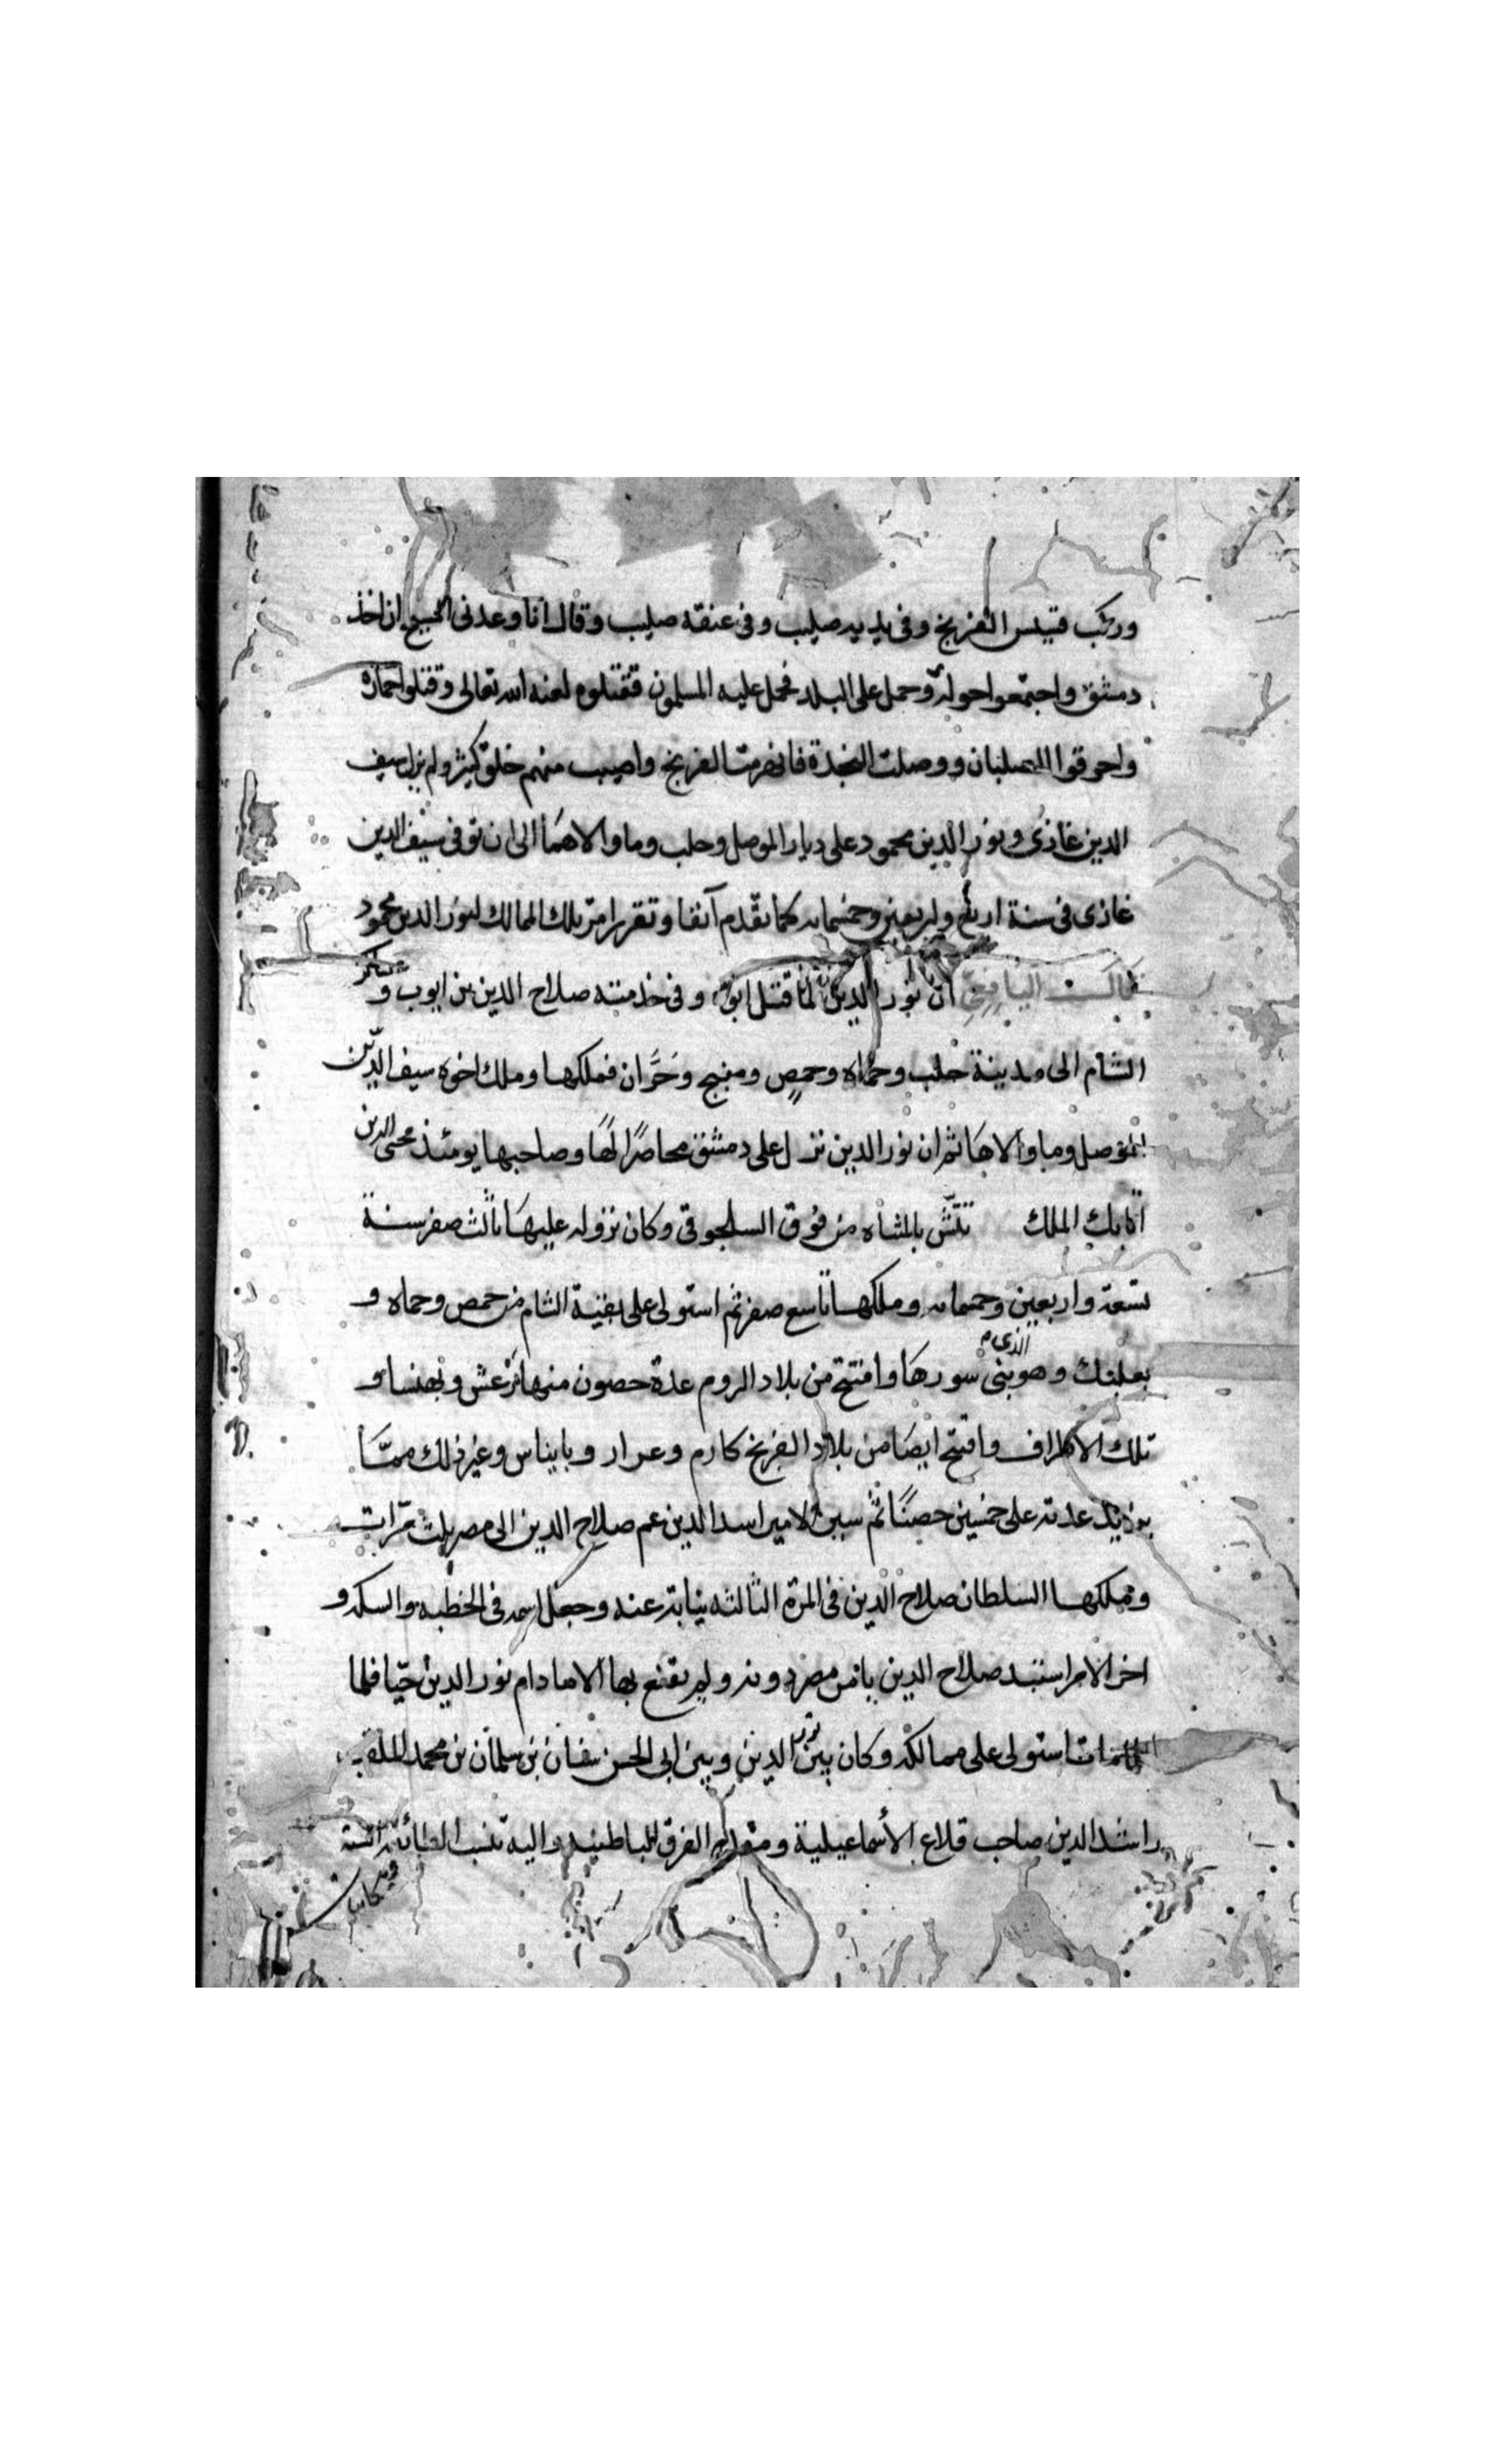 وركب قسيس الفرنج وفى يديه صليب وفى عنقه صليب وقال انا وعدنى المسيح ان اخذ
دمشق واجتمعوا حوله وحمل على البلد فحمل عليه المسلمون فقتلوه لعنه الله تعالى وقتلوا حماره
واحرقوا الصلبان ووصلت النجدة فانهزمت الفرنج واصيب منهم خلق كثير ولم يزل سيف
الدين غازى ونور الدين محمود على ديار الموصل وحلب وما والاهما الى ان توفى سيف الدين
غازى فى سنة اربع واربعين وخمسمايه كما تقدم آنفا وتقرر امر تلك الممالك لنور الدين محمود
قال اليافعى ان نور الدين لما قتل ابوه وفى خدمته صلاح الدين بن ايوب وعسكر
الشام الى مدينة حلب وحماه وحمص ومنبج وحَرَّان فملكها وملك اخوه سيف الدين
الموصل وما والاها ثم ان نور الدين نزل على دمشق محاصرًا لها وصاحبها يومئذ محى الدين
اتابك الملك تتش بالمثناه من فوق السلجوقى وكان نزوله عليها ثالث صفر سنة
تسعة واربعين وخمسمايه وملكها تاسع صفر ثم استولى على بقية الشام من حمص وحماه و
بعلبك وهو الذى بنى سورها وافتتح من بلاد الروم عدة حصون منها مرعش وبهنسا و
تلك الاطراف وافتتح ايضا من بلاد الفرنج كارم وعرار وبايناس وغير ذلك ممّا
يزيد عدته على خمسين حصنًا ثم سير الامير اسد الدين عم صلاح الدين الى مصر ثلث مرّات
وملكها السلطان صلاح الدين فى المرة الثالثه نيابة عنه وجعل اسمه فى الخطبه والسكه و
اخر الامر استبد صلاح الدين بامر مصر دونه ولم يقنع بها الا ما دام نور الدين حيّا فلما
مات استولى على ممالكه وكان بين نور الدين وبين ابى الحسن سفان بن سلمان بن محمد الملقب
راشد الدين صاحب قلاع الأسماعيلية ومقدم الفرق الباطنيه واليه تنسب الطائفة